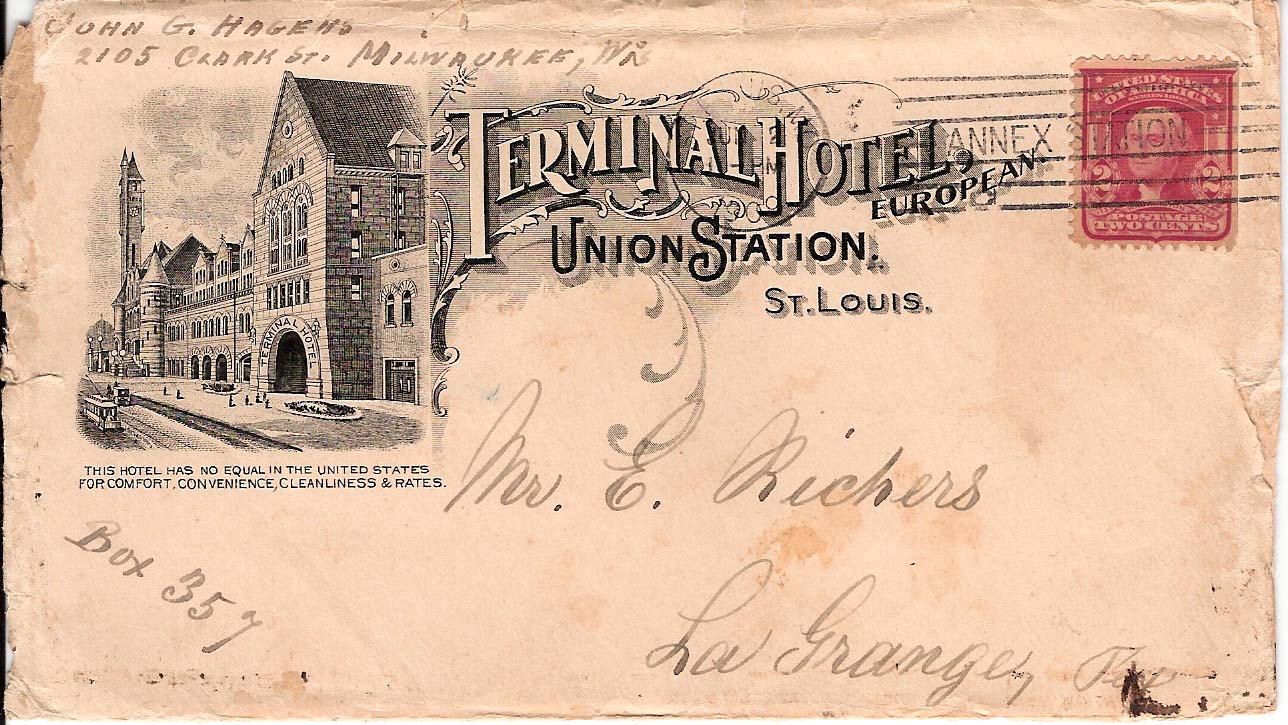 JOHN G. HAGENS
2105 CLARK ST. MILWAUKEE, WIS
TERMINAL HOTEL,
EUROPEAN.
UNION STATION.
ST. LOUIS.
ANNEX STATION
UNITED STATES
OF AMERICA
2 2
POSTAGE
TWO CENTS
TERMINAL HOTEL
THIS HOTEL HAS NO EQUAL IN THE UNITED STATES
FOR COMFORT, CONVENIENCE, CLEANLINESS & RATES.
Mr. E. Richers
Box 357
La Grange, Tex